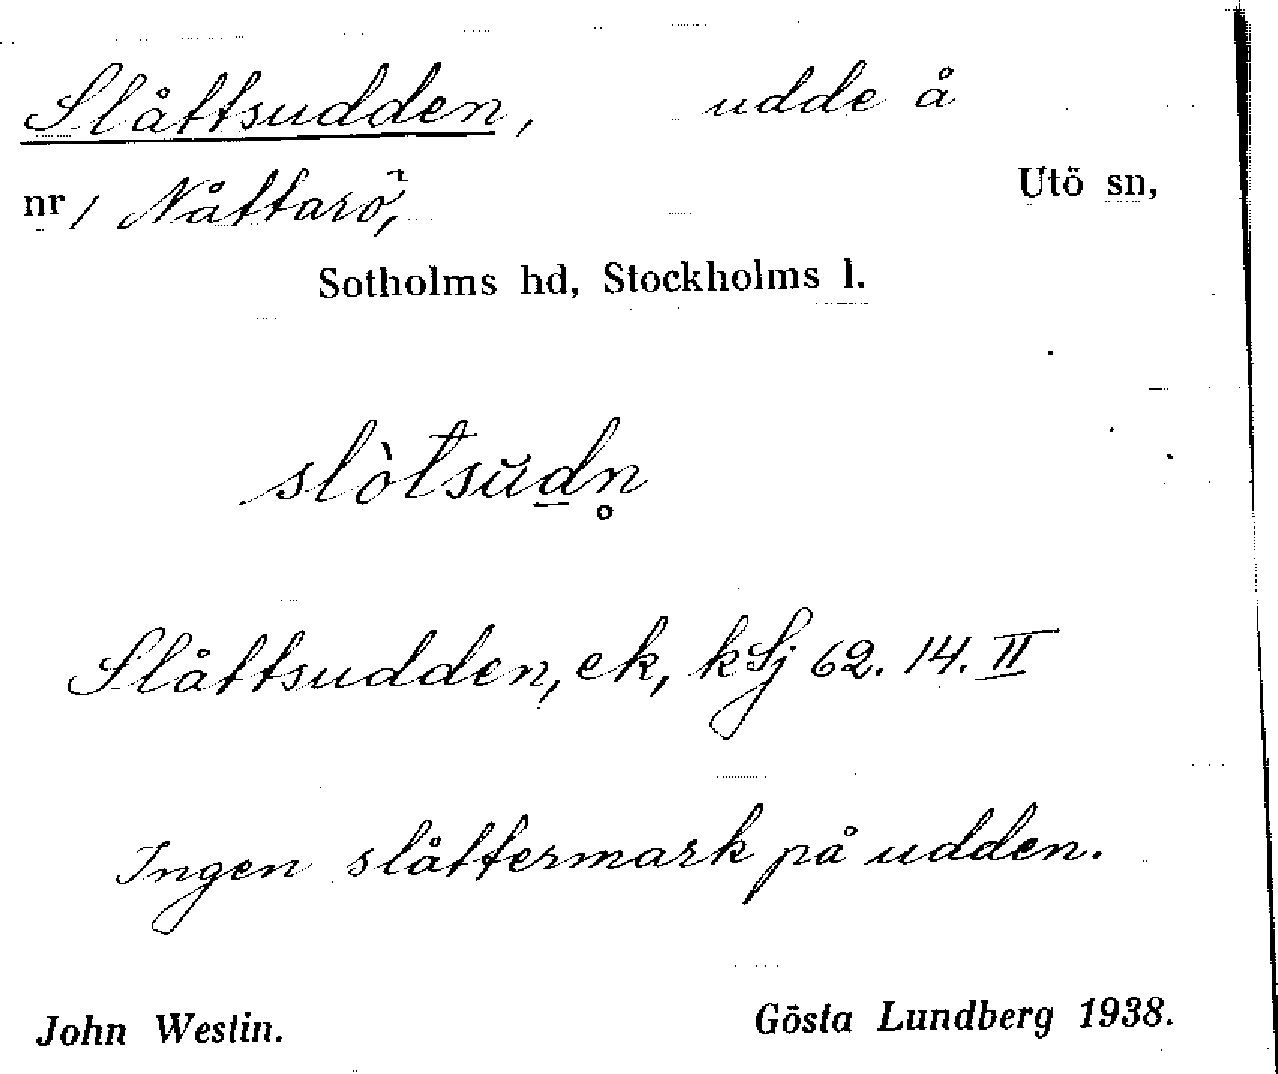 Slåttsudden, udde å
nr 1 Nåttarö, Utö sn,
Sotholms hd, Stockholms l.
slòtsŭd̲n̥
Slåttsudden, ek, kSj 62. 14. II
Ingen slåttermark på udden.
John Westin. Gösta Lundberg 1938.